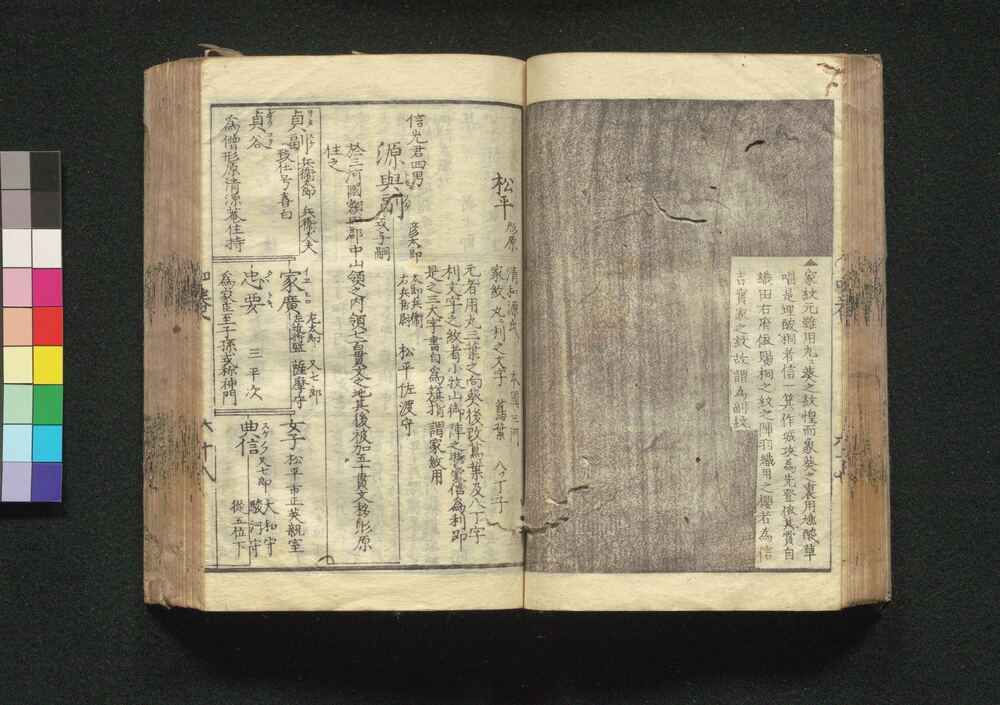 ▲家紋元雖用丸葵之紋惶而象葵之裏用酸草
唱是埋酸桐者信一箕作城攻為先登依其賞自
織田右府依賜桐之紋之陣羽織用之櫻者為信
吉實家之紋故謂為副紋
松平 形原
清和源氏 本國三河
家紋 丸ニ利之文字 蔦葉 八丁子
元者用丸三葉之向葵後改蔦葉及八丁字
利文字之紋者小牧山御陣之時家信為利卽
是之三大字書自為籏指謂家紋用
信光君四男
源與副 或与嗣
彦太郎
太郎兵衞
右兵衞尉
松平佐渡守
於三河國額田郡中山領之内領七百貫文之地其後被加五十貫文移形原
住之
貞副 兵衞太郎 兵衞大夫
致仕号喜白
家廣 イエヒロ
左太郎
左近將監
又七郎
薩摩守
女子 松平市正英親室
貞谷
為僧形原清源菴住持
忠要 三平次
為家臣至子孫或称神門
典信 スケノフ
又七郎
大和守
駿河守
從五位下
六十八